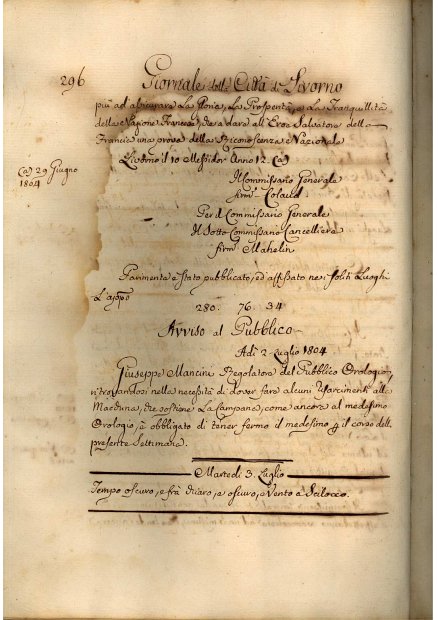 296 Giornale della Città di Livorno
più ad assicurare La Gloria, La Prosperità, e La Tranquillità
della Nazione Francese, che a dare all'Eroe Salvatore della
Francia una prova della Riconoscenza Nazionale
Livorno il 10 Messidor Anno 12. (a)
(a) 29 Giugno
1804
Il Commissario Generale
firm.
Per il Commissario Generale
Il Sotto Commissario Cancelliere
firm. Mahelin
Parimente è stato pubblicato, ed affissato nei soliti Luoghi
L'appo
280. 76. 34
Avviso al Pubblico
Adì 2 Luglio 1804
Giuseppe Mancini Regolatore del Pubblico Orologio,
ritrovandosi nella necessità di dover fare alcuni risarcimenti alla
Macchina, che sostiene La Campana, come ancora al medesimo
Orologio, è obbligato di tener fermo il medesimo p il corso della
presente Settimana.
Martedì 3. Luglio
Tempo oscuro, e frà chiaro, e oscuro, e Vento a Scilocco.